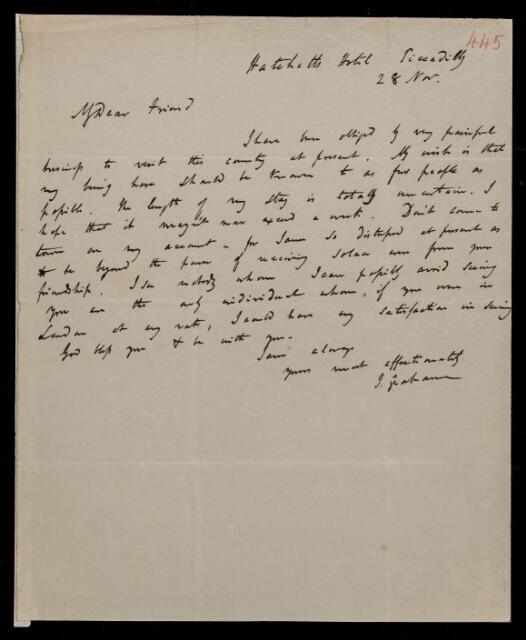 445
Hatchetts Hotel Piccadilly
28 Nov.
My Dear Friend
I have been obliged by very painful
business to visit this country at present. My wish is that
my being here should be known to as few people as
possible. The length of my stay is totally uncertain. I
hope that it may not exceed a week. Don't come to
town on my account - for I am so distressed at present as
to be beyond the power of receiving solace even from your
friendship. I see nobody whom I can possibly avoid seeing
You are the only individual whom, if you were in
London at any rate, I would have any satisfaction in seeing
God bless you & be with you.
I am always
yours most affectionately
J. Grahame